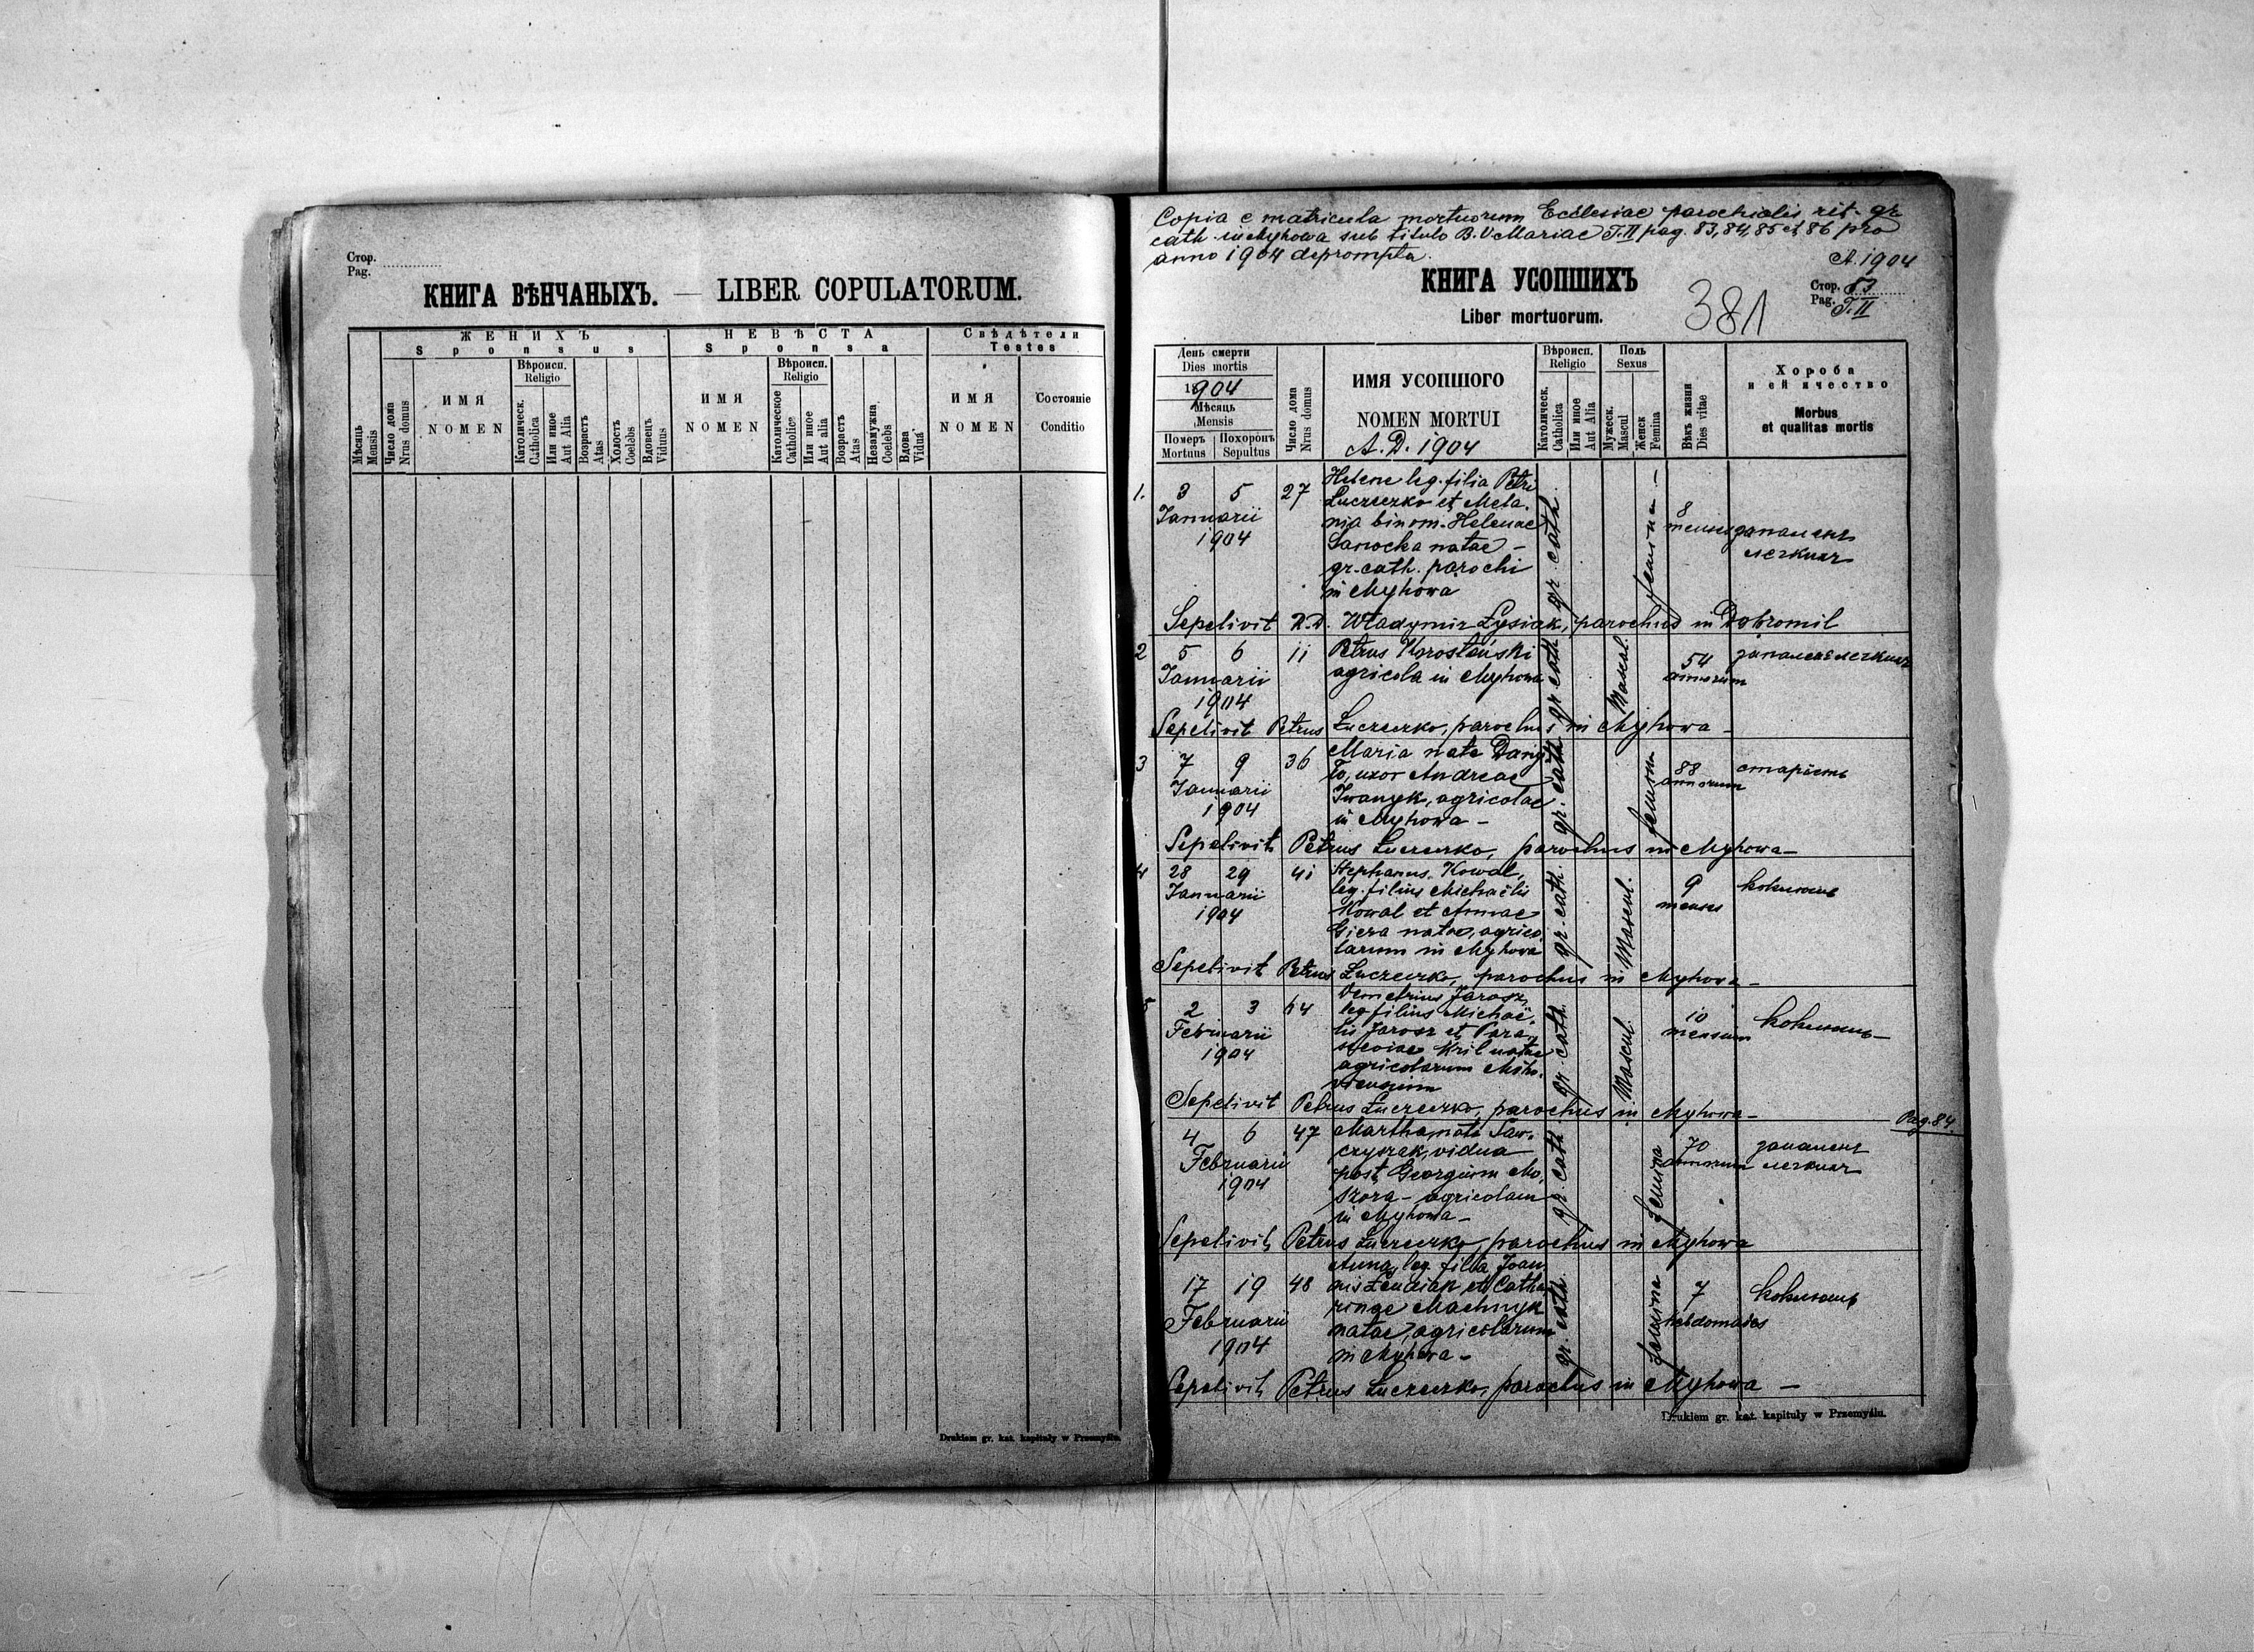 Стор.
Pag.
КНИГА ВѢНЧАНЫХЪ. — LIBER COPULATORUM.
ЖЕНИХЪ
Sponsus
НЕВѢСТА
Sponsa
Свѣдѣтели
Testes
Мѣсяць
Mensis
Число дома
Nrus domus
ИМЯ
NOMEN
Вѣроисп.
Religio
Католическ.
Catholica
Или иное
Aut Alia
Возрастъ
Atas
Холостъ
Coelebs
Вдовецъ
Viduus
ИМЯ
NOMEN
Вѣроисп.
Religio
Католическое
Catholice
Или иное
Aut alia
Возрастъ
Atas
Незамужна
Coelebs
Вдова
Vidua
ИМЯ
NOMEN
Состояніе
Conditio
Drukiem gr. kat. kapituły w Przemyślu.
Copia e matricula mortuorum Ecclesiae parochialis rit. gr.
cath. in Myhowa sub titulo B. V. Mariae T. II pag. 83, 84, 85 et 86 pro
anno 1904 deprompta.
A. 1904
КНИГА УСОПШИХЪ
Liber mortuorum.
381
Стор. 83
Pag. T. II
День смерти
Dies mortis
1904
Мѣсяць
Mensis
Померъ
Mortuus
Похоронъ
Sepultus
Число дома
Nrus domus
ИМЯ УСОПШОГО
NOMEN MORTUI
A. D. 1904
Вѣроисп.
Religio
Католическ.
Catholica
Или иное
Aut Alia
Поль
Sexus
Мужеск.
Mascul
Женск
Femina
Вѣкъ жизни
Dies vitae
Хороба
и ей ичество
Morbus
et qualitas mortis
1. 3 5 27 Helene leg. filia Petri
Łuczeczko et Mela-
nia binom. Helenae
Sanocka natae –
gr. cath. parochi
in Myhowa
Januarii
1904
gr. cath.
femina –
8
menses
запаленє
легких
Sepelivit R. D. Władymir Łysiak, parochus in Dobromil
2 5 6 11 Petrus Krosteński
agricola in Myhowa
Januarii
1904
gr. cath.
Mascul.
54
annorum
запаленє легких
Sepelivit Petrus Łuczeczko, parochus in Myhowa –
3 7 9 36 Maria nata Dany-
ło, uxor Andreae
Iwanyk, agricolae
in Myhowa –
Januarii
1904
gr. cath.
femina
88
annorum
старість
Sepelivit Petrus Łuczeczko, parochus in Myhowa –
4 28 29 41 Stephanus Kowal,
leg. filius Michaëlis
Kowal et Annae
Giera natae, agrico-
larum in Myhowa
Januarii
1904
gr. cath.
Mascul.
9
menses
коклюшь
Sepelivit Petrus Łuczeczko, parochus in Myhowa –
5 2 3 64 Demetrius Jarosz,
leg. filius Michaë-
lis Jarosz et Para-
sceviae Kril natae
agricolarum Miho-
viensium
Februarii
1904
gr. cath.
Mascul.
10
mensium
коклюшь –
Sepelivit Petrus Łuczeczko, parochus in Myhowa –
Pag. 84.
4 6 47 Martha nata Saw-
czyszak, vidua
post Georgium Mo-
szora – agricolam
in Myhowa –
Februarii
1904
gr. cath.
femina
70
annorum
запаленє
легких
Sepelivit Petrus Łuczeczko, parochus in Myhowa
17 19 48 Anna, leg. filia Joan-
nis et Catha-
rinae Machnyk
natae, agricolarum
in Myhowa –
Februarii
1904
gr. cath.
femina
7
hebdomades
коклюшь
Sepelivit Petrus Łuczeczko, parochus in Myhowa –
Drukiem gr. kat. kapituły w Przemyślu.